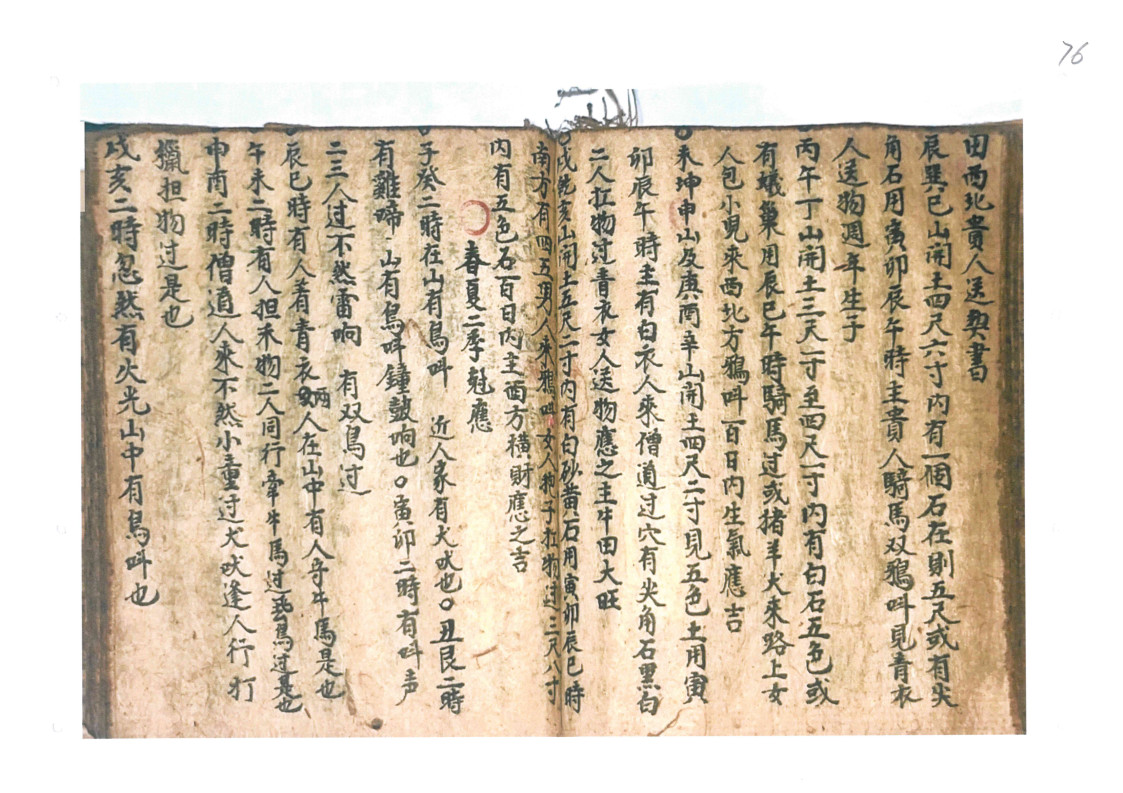 76
田西北貴人送契書
辰巽巳山開土四尺六寸內有一個石在則五尺或有尖
角石用寅卯辰午時主貴人騎馬双鴉呌見青衣
人送物週年生子
丙午丁山開土三天一寸至四尺一寸內有白石五色或
有蟻巢用辰巳午時騎馬过或猪羊火来路上女
人包小児来西北方鴉呌一百日內生氣應吉
未坤申山及庚酉辛山開土四尺二寸見五色土用寅
卯辰午時主有白衣人来僧道过穴有尖角石黑白
二人扛物过青衣女人送物應之主牛田大旺
戌乾亥山開土五尺二寸內有白砂黄石用寅卯辰巳時
南方有四五男人来鴉呌女人抱子扛物过三尺八寸
內有五色石一百日內主西方橫財應之吉
春夏二季尅應
子癸二時在山有鳥呌 近人家有犬吠也○丑艮二時
有雞啼山有鳥呌鐘鼓响也○寅卯二時有呌声
二三人过不然雷响 有双鳥过
辰巳時有人着青衣兩人在山中有人牵牛馬是也
午未二時有人担禾物二人同行牽牛馬过鳥过是也
申酉二時僧道人来不然小童过犬吠逢人行打
獵担物过是也
戌亥二時忽然有火光山中有鳥呌也